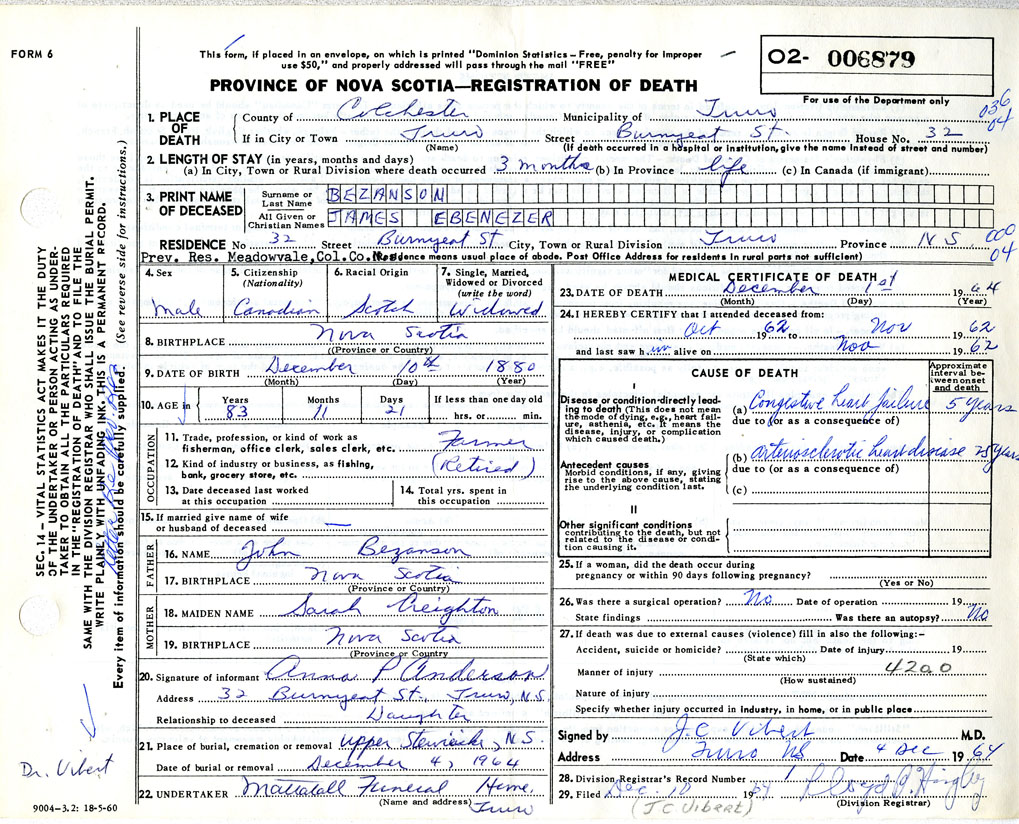 FORM 6
This form, if placed in an envelope, on which is printed "Dominion Statistics – Free, penalty for improper
use $50," and properly addressed will pass through the mail "FREE"
PROVINCE OF NOVA SCOTIA—REGISTRATION OF DEATH
O2- 006879
For use of the Department only
036
04
1. PLACE OF DEATH
County of Colchester Municipality of Truro
If in City or Town Truro Street Burnyeat St. House No. 32
(Name) (If death occurred in a hospital or institution, give the name instead of street and number)
2. LENGTH OF STAY (in years, months and days)
(a) In City, Town or Rural Division where death occurred 3 months (b) In Province life (c) In Canada (if immigrant)
3. PRINT NAME OF DECEASED
Surname or Last Name BEZANSON
All Given or Christian Names JAMES EBENEZER
RESIDENCE No 32 Street Burnyeat St City, Town or Rural Division Truro Province N S
000
04
Prev. Res. Meadowvale, Col. Co. Residence means usual place of abode. Post Office Address for residents in rural parts not sufficient)
4. Sex
Male
5. Citizenship
(Nationality)
Canadian
6. Racial Origin
Scotch
7. Single, Married,
Widowed or Divorced
(write the word)
Widowed
8. BIRTHPLACE Nova Scotia
(Province or Country)
9. DATE OF BIRTH December 10th 1880
(Month) (Day) (Year)
10. AGE in
Years Months Days If less than one day
83 11 21 hrs. or min.
OCCUPATION
11. Trade, profession, or kind of work as
fisherman, office clerk, sales clerk, etc. Farmer
12. Kind of industry or business, as fishing,
bank, grocery store, etc. (Retired)
13. Date deceased last worked
at this occupation
14. Total yrs. spent in
this occupation
15. If married give name of wife
or husband of deceased —
FATHER
16. NAME John Bezanson
17. BIRTHPLACE Nova Scotia
(Province or Country)
MOTHER
18. MAIDEN NAME Sarah Creighton
19. BIRTHPLACE Nova Scotia
(Province or Country)
20. Signature of informant Anna P Anderson
Address 32 Burnyeat St. Truro, N.S.
Relationship to deceased Daughter
21. Place of burial, cremation or removal Upper Stewiacke, N.S.
Date of burial or removal December 4, 1964
22. UNDERTAKER Mattatall Funeral Home,
(Name and address) Truro
MEDICAL CERTIFICATE OF DEATH
23. DATE OF DEATH December 1st 1964
(Month) (Day) (Year)
24. I HEREBY CERTIFY that I attended deceased from:
Oct 1962 to Nov 1962
and last saw him alive on Nov 1962
CAUSE OF DEATH
Approximate
interval be-
tween onset
and death
I
Disease or condition directly lead-
ing to death (This does not mean
the mode of dying, e.g., heart fail-
ure, asthenia, etc. It means the
disease, injury, or complication
which caused death.)
(a) Congestive heart failure 5 years
due to (or as a consequence of)
Antecedent causes
Morbid conditions, if any, giving
rise to the above cause, stating
the underlying condition last.
(b) arteriosclerotic heart disease 25 years
due to (or as a consequence of)
(c)
II
Other significant conditions
contributing to the death, but not
related to the disease or condi-
tion causing it.
25. If a woman, did the death occur during
pregnancy or within 90 days following pregnancy?
(Yes or No)
26. Was there a surgical operation? No Date of operation 19
State findings Was there an autopsy? No
27. If death was due to external causes (violence) fill in also the following:–
Accident, suicide or homicide? Date of injury 19
(State which)
Manner of injury 4200
(How sustained)
Nature of injury
Specify whether injury occurred in industry, in home, or in public place
Signed by J.C. Vibert M.D.
Address Truro NS Date 4 Dec 1964
28. Division Registrar's Record Number
29. Filed Dec. 10 1964
(Division Registrar)
(J C VIBERT)
SEC. 14 – VITAL STATISTICS ACT MAKES IT THE DUTY
OF THE UNDERTAKER OR PERSON ACTING AS UNDER-
TAKER TO OBTAIN ALL THE PARTICULARS REQUIRED
IN THE "REGISTRATION OF DEATH" AND TO FILE THE
SAME WITH THE DIVISION REGISTRAR WHO SHALL ISSUE THE BURIAL PERMIT.
WRITE PLAINLY WITH UNFADING INK. THIS IS A PERMANENT RECORD.
Every item of information should be carefully supplied. (See reverse side for instructions.)
Dr. Vibert
9004–3.2: 18-5-60